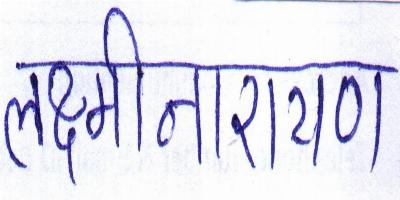 लक्ष्मीनारायण